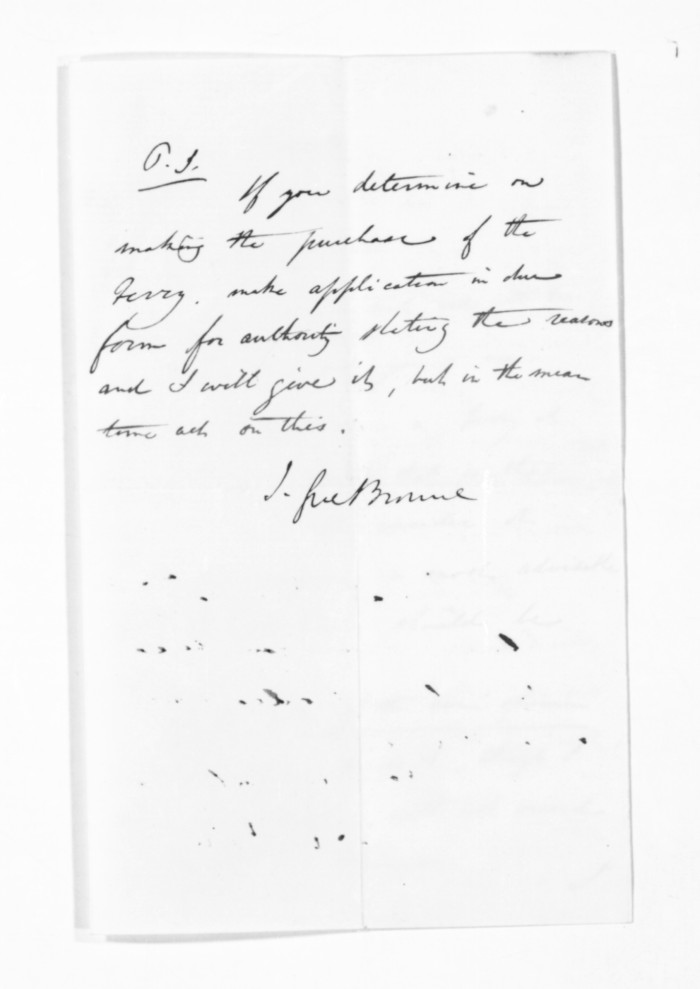 P.S.
If you determine on
making the purchase of the
Ferry, make application in due
form for authority stating the reasons
and I will give it, but in the mean
time act on this.
T. Gore Browne